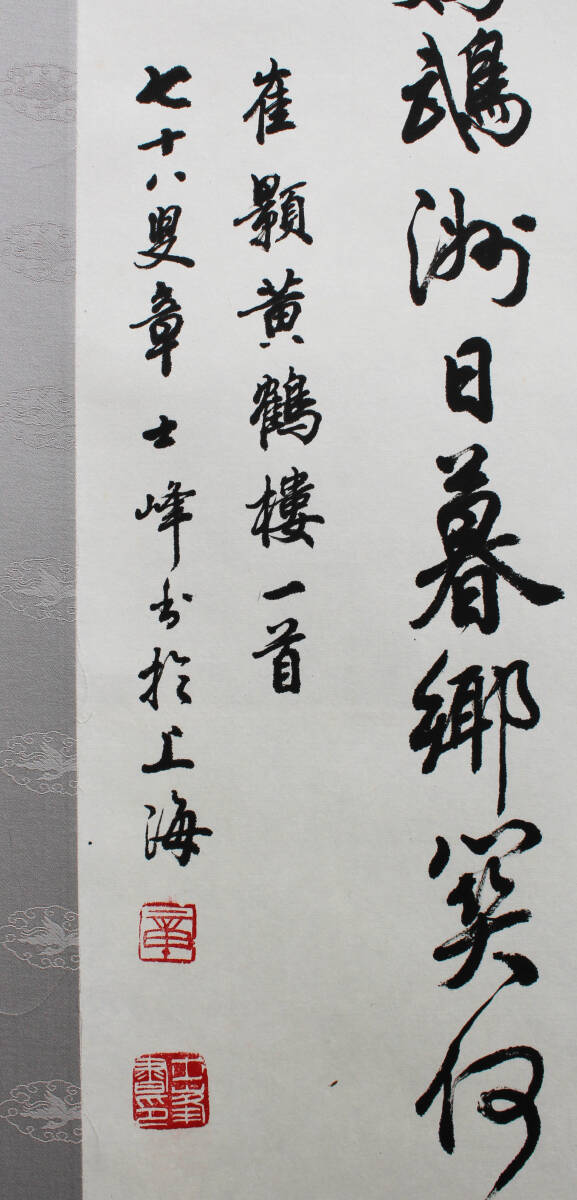 鵡洲日暮鄉關何
崔顥黃鶴樓一首
七十八叟章士峰书於上海
章
士峯書印